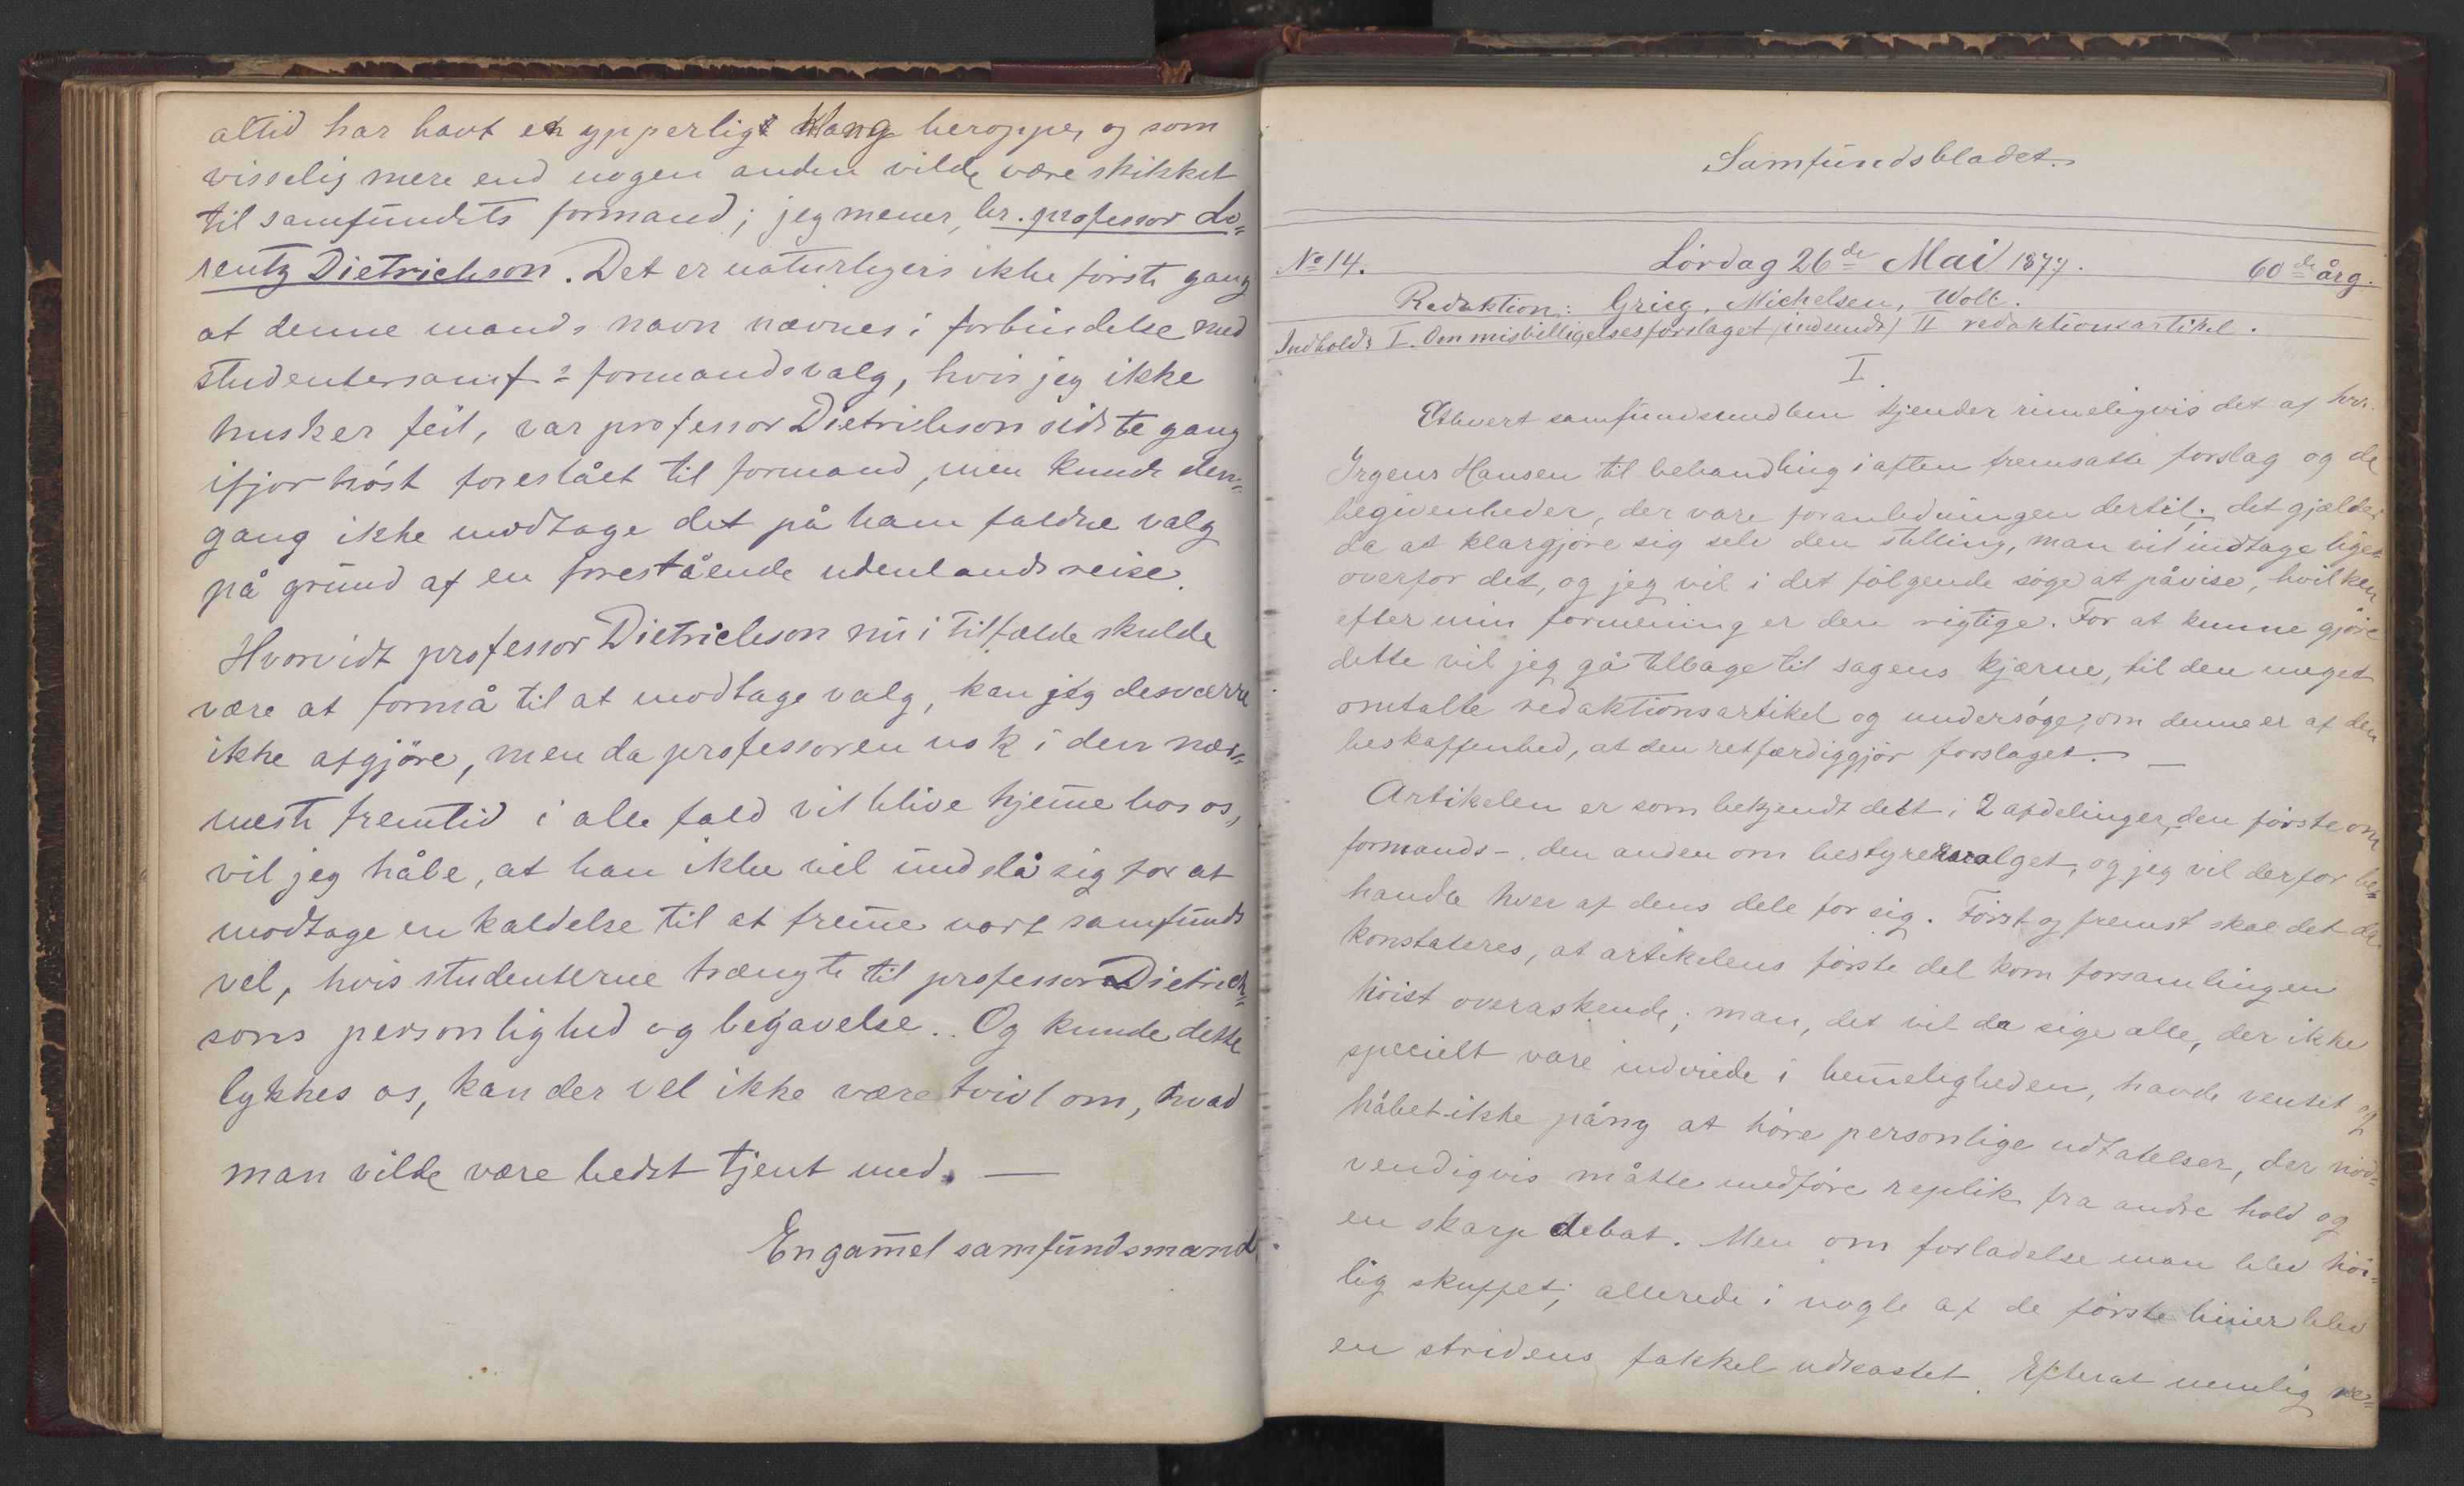 altid har havt en ypperlig klang heroppe, og som
visselig mere end nogen anden vilde være skikket
til samfundets formand; jeg mener, hr. professor Lo=
rentz Dietrichson. Det er naturligvis ikke förste gang
at denne mands navn nævnes i forbindelse med
studentersamf.s formandsvalg, hvis jeg ikke
husker feil, var professor Dietrichson sidste gang
ifjor höst foreslået til formand, men kunde den=
gang ikke modtage det på ham faldne valg
på grund af en forestående udenlandsreise.
Hvorvidt professor Dietrichson nu i tilfælde skulde
være at formå til at modtage valg, kan jeg desværre
ikke afgjöre, men da professoren nok i den nær=
meste fremtid i alle fald vil blive hjem̄e hos os,
vil jeg håbe, at han ikke vil undslå sig for at
modtage en kaldelse til at frem̄e vort samfunds
vel, hvis studenterne trængte til professor Dietrich=
sons personlighed og begavelse. Og kunde dette
lykkes os, kan der vel ikke være tvivl om, hvad
man vilde være bedst tjent med. —
En gam̄el samfundsmand.
Samfundsbladet.
No 14.
Lördag 26de Mai 1877.
60de årg.
Redaktion: Grieg, Michelsen, Wolf.
Indhold: I. Om misbilligelsesforslaget (indsendt) II redaktionsartikel.
I.
Ethvert samfundsmedlem kjender rimeligvis det af hr.
Irgens Hansen til behandling i aften fremsatte forslag og de
begivenheder, der vare foranledningen dertil; det gjælder
da at klargjöre sig selv den stilling, man vil indtage lige
overfor det, og jeg vil i det fölgende söge at påvise, hvilken
efter min formening er den rigtige. For at kunne gjöre
dette vil jeg gå tilbage til sagens kjærne, til den meget
omtalte redaktionsartikel og undersöge, om denne er af den
beskaffenhed, at den retfærdiggjör forslaget. —
Artikelen er som bekjendt delt i 2 afdelinger, den förste om
formands-, den anden om bestyrelsesvalget, og jeg vil derfor be=
handle hver af dens dele for sig. Först og fremst skal det da
konstateres, at artikelens förste del kom forsamlingen
höist overaskende; man, det vil da sige alle, der ikke
specielt vare indviede i hem̄eligheden, havde ventet og
håbet ikke påny at höre personlige udtalelser, der nöd=
vendigvis måtte medföre replik fra andre hold og
en skarp debat. Men om forladelse man blev höi=
lig skuffet; allerede i nogle af de förste linier blev
en stridens fakkel udkastet. Efterat nemlig re=